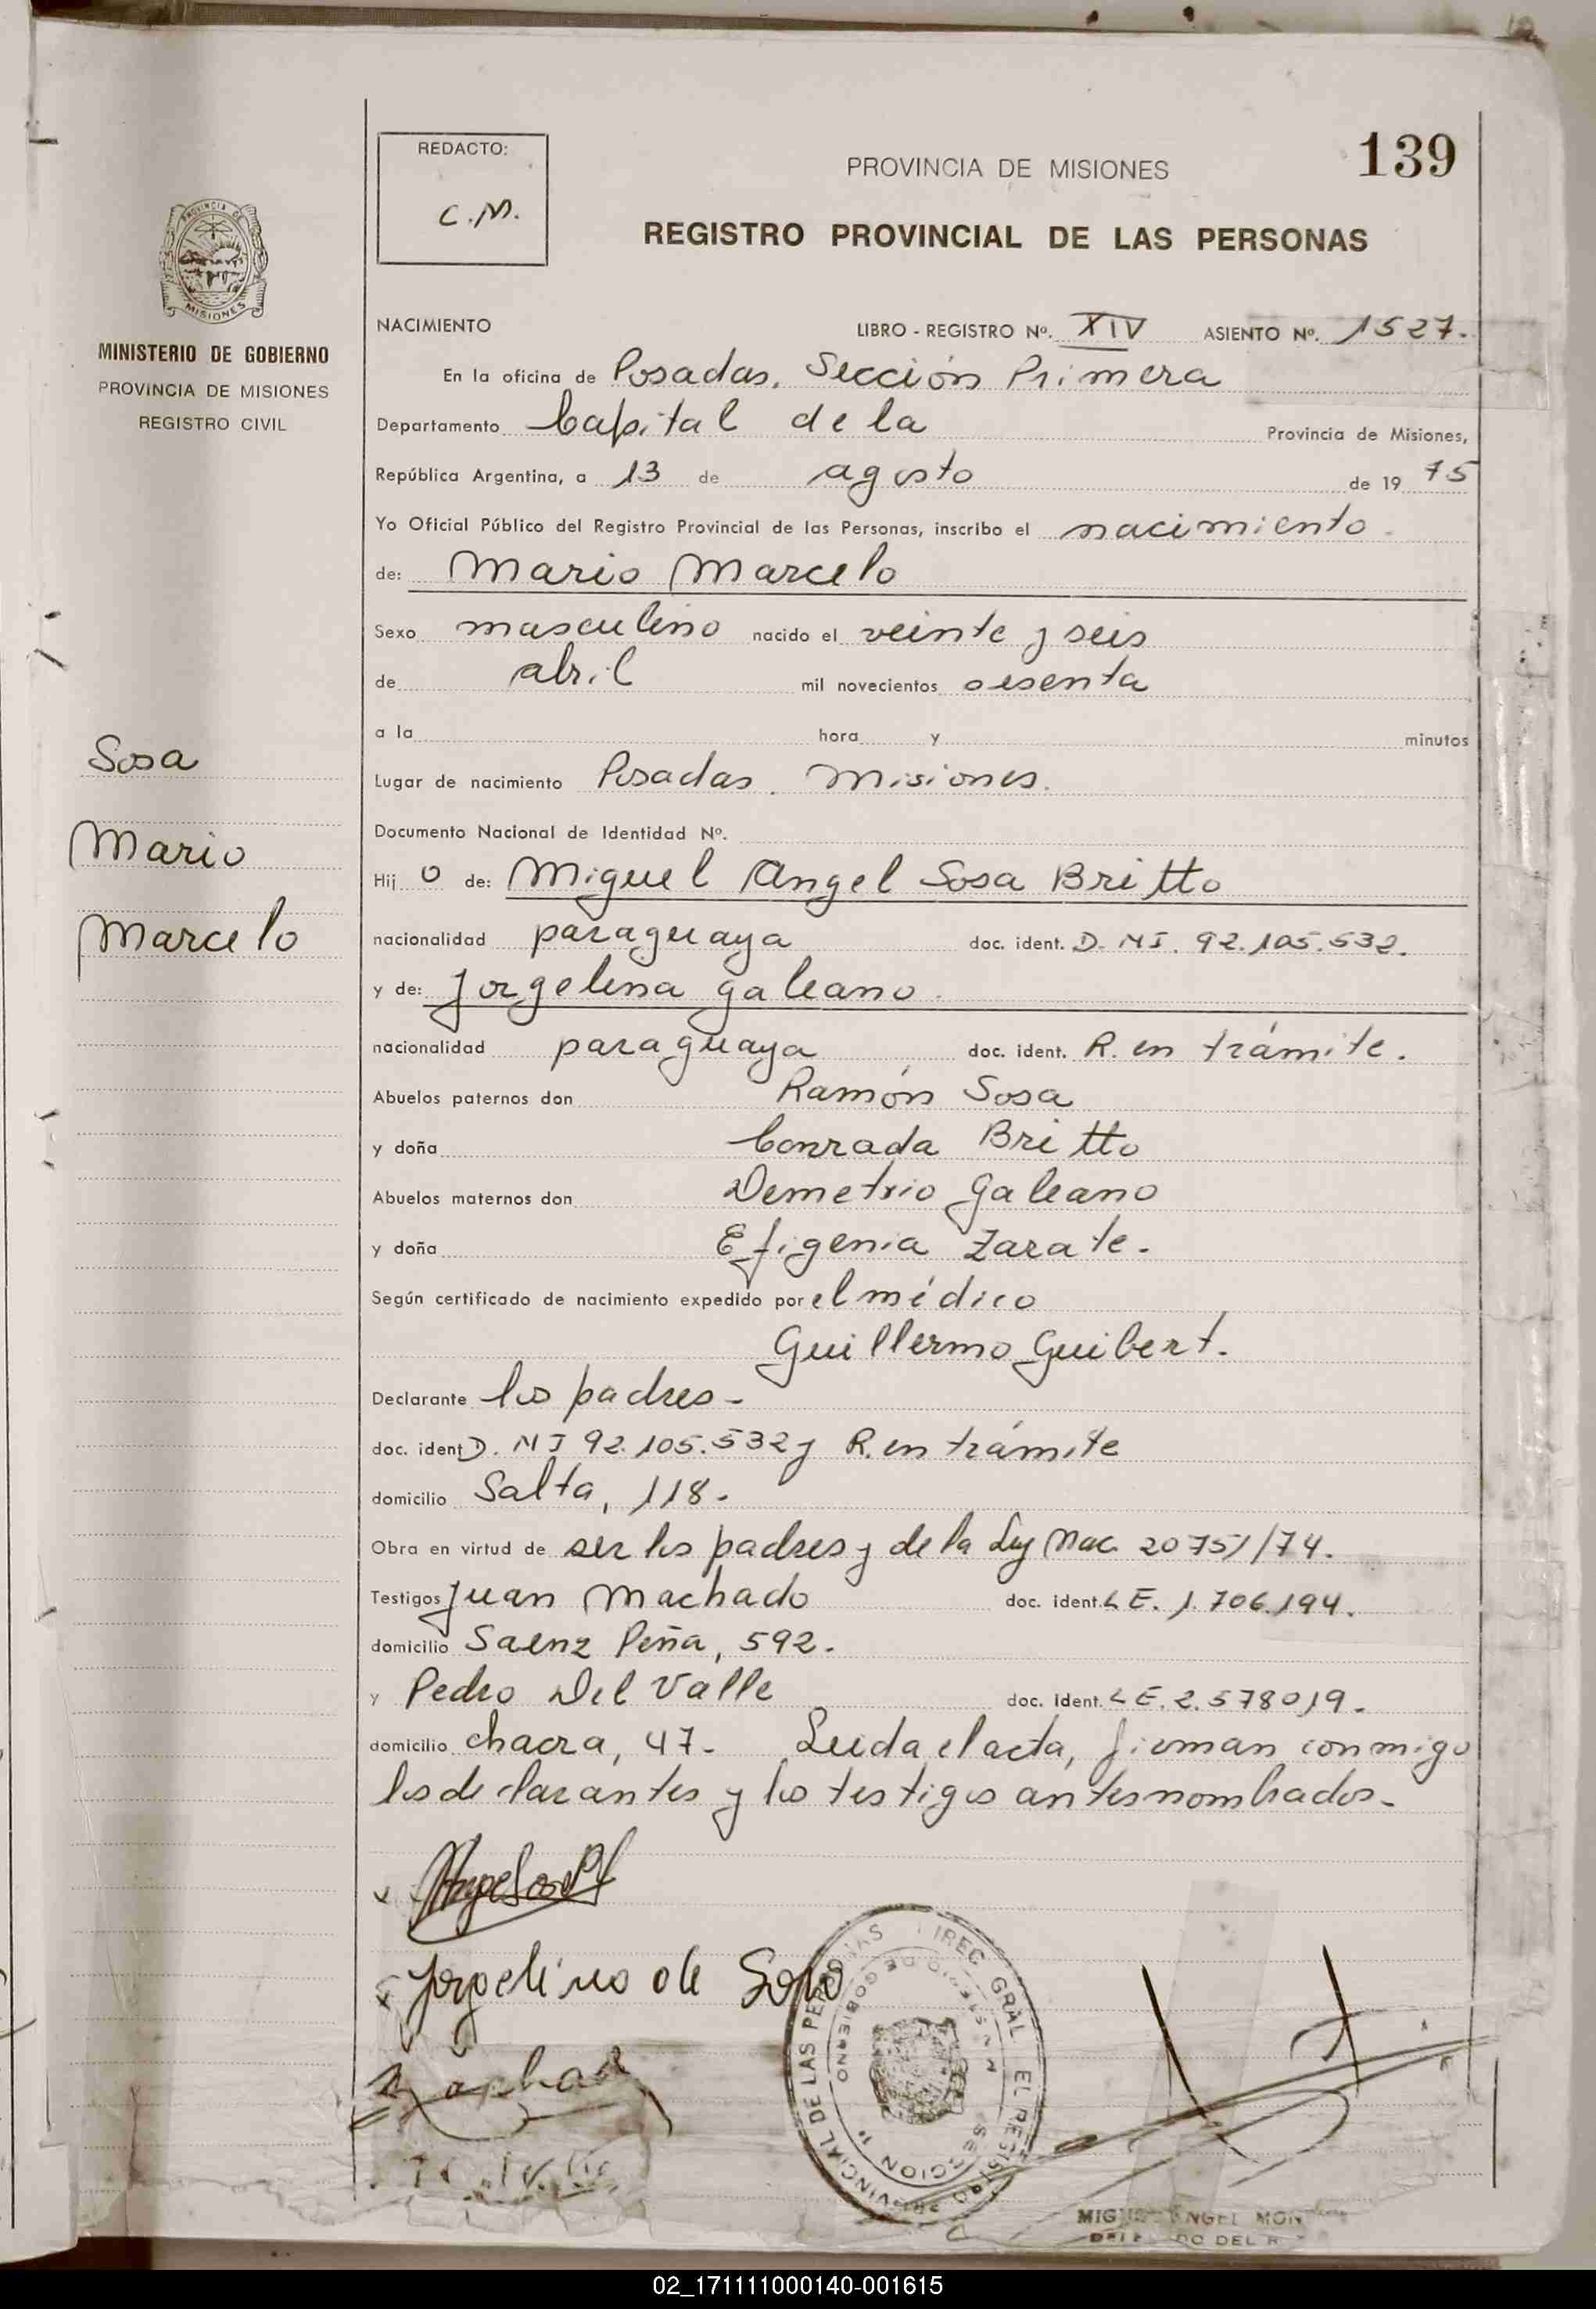 139
REDACTO:
C.M.
PROVINCIA DE MISIONES
REGISTRO PROVINCIAL DE LAS PERSONAS
PROVINCIA DE
MISIONES
MINISTERIO DE GOBIERNO
PROVINCIA DE MISIONES
REGISTRO CIVIL
Sosa
Mario
Marcelo
NACIMIENTO LIBRO - REGISTRO Nº. XIV ASIENTO Nº. 1527.
En la oficina de Posadas. Sección Primera
Departamento Capital de la Provincia de Misiones,
República Argentina, a 13 de agosto de 19 75
Yo Oficial Público del Registro Provincial de las Personas, inscribo el nacimiento
de: Mario Marcelo
Sexo masculino nacido el veinte y seis
de abril mil novecientos sesenta
a la hora y minutos
Lugar de nacimiento Posadas. Misiones.
Documento Nacional de Identidad Nº.
Hij o de: Miguel Angel Sosa Britto
nacionalidad paraguaya doc. ident. D. NI. 92.105.532.
y de: Jorgelina Galeano.
nacionalidad paraguaya doc. ident. R. en trámite.
Abuelos paternos don Ramón Sosa
y doña Conrada Britto
Abuelos maternos don Demetrio Galeano
y doña Efigenia Zarate.
Según certificado de nacimiento expedido por el médico
Guillermo Guibert.
Declarante los padres-
doc. ident D. NI 92.105.532 y R. en trámite
domicilio Salta, 118.
Obra en virtud de ser los padres y de la Ley Nac. 20751/74.
Testigos Juan Machado doc. ident. LE. 1.706.194.
domicilio Saenz Peña, 592.
y Pedro Del Valle doc. ident. LE. 2.578019.
domicilio chacra, 47- Leida el acta, firman conmigo
los declarantes y los testigos antes nombrados-
Jorgelina de Sosa
DIREC GRAL EL REGISTRO PROVINCIAL DE LAS PERSONAS
MINISTERIO DE GOBIERNO
SECCION 1ª
MIGUEL ANGEL
02_171111000140-001615